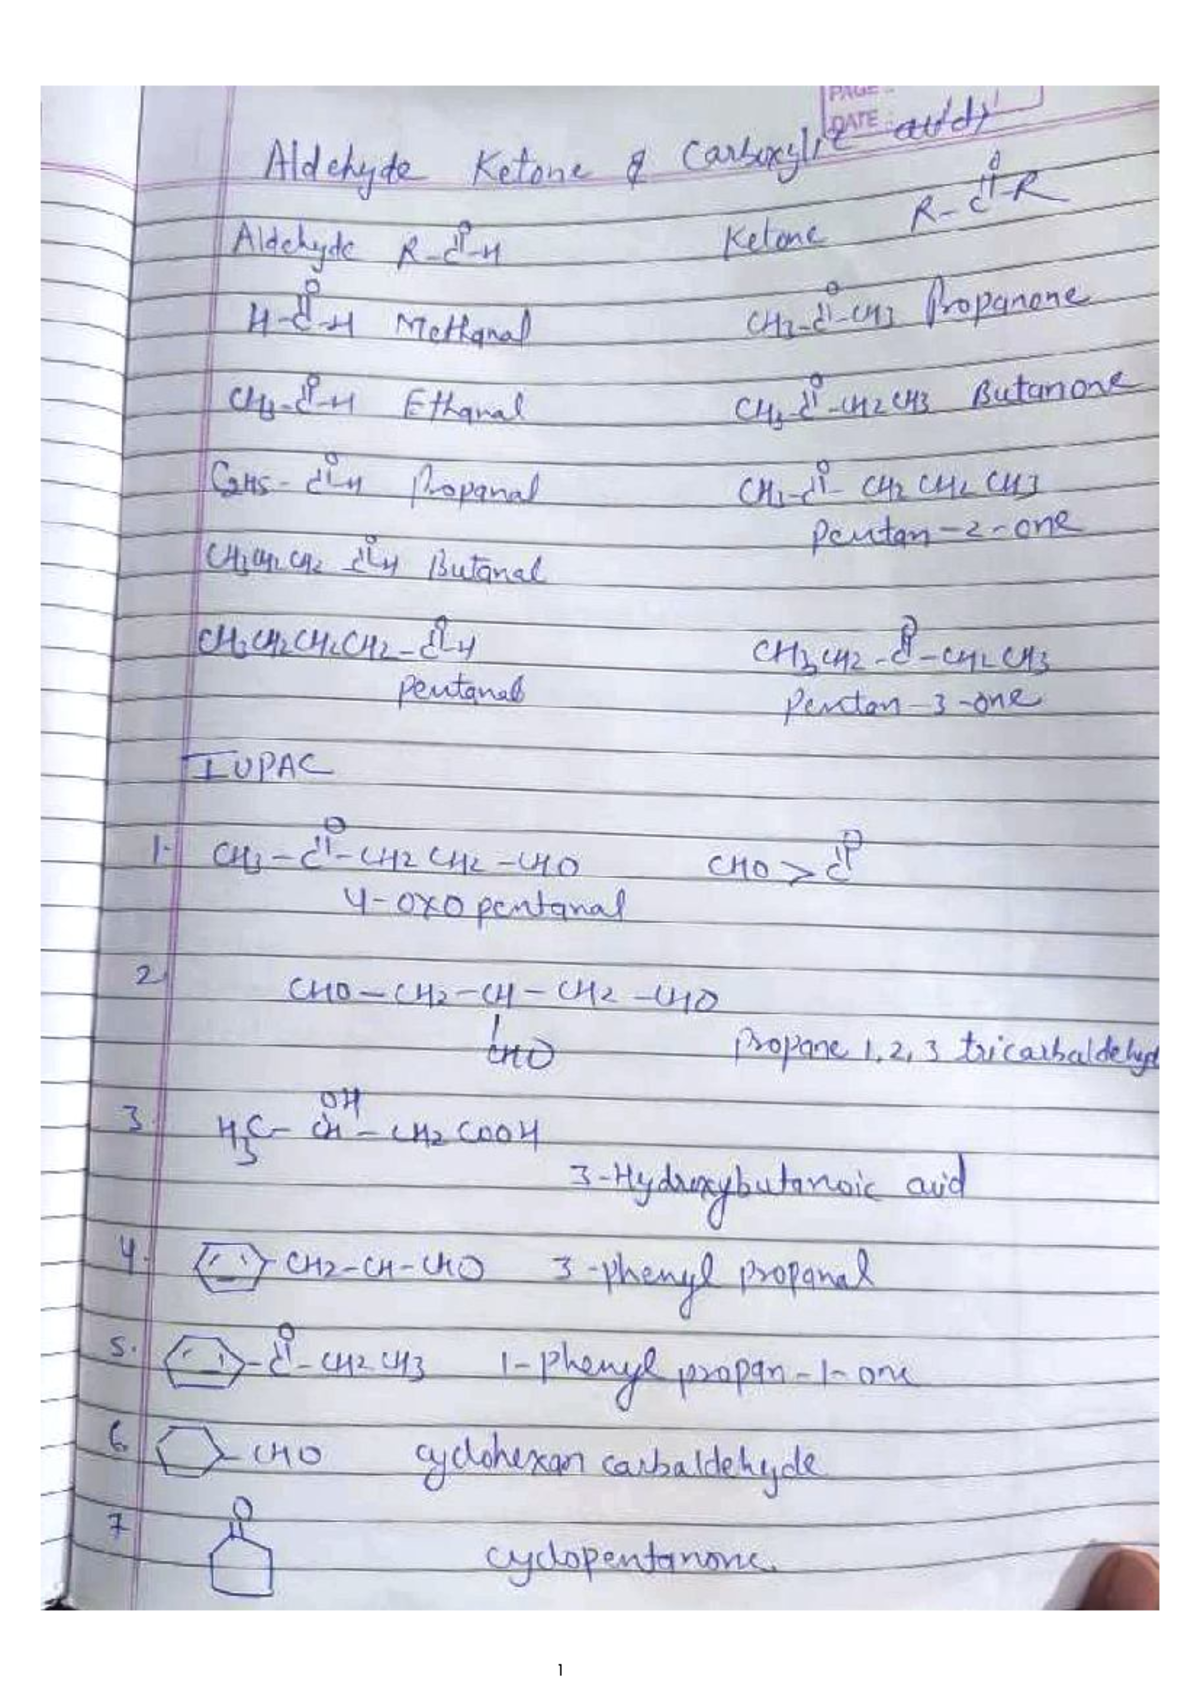 PAGE :
DATE :
Aldehyde Ketone & Carboxylic acids
Aldehyde R-C(=O)-H Ketone R-C(=O)-R
H-C(=O)-H Methanal CH3-C(=O)-CH3 Propanone
CH3-C(=O)-H Ethanal CH3-C(=O)-CH2CH3 Butanone
C2H5-C(=O)-H Propanal CH3-C(=O)-CH2CH2CH3
Pentan-2-one
CH3CH2CH2 C(=O)-H Butanal
CH3CH2CH2CH2-C(=O)-H CH3CH2-C(=O)-CH2CH3
Pentanal Pentan-3-one
IUPAC
1. CH3-C(=O)-CH2CH2-CHO CHO > C=O
4-oxopentanal
2 CHO-CH2-CH-CH2-CHO
CHO Propane 1,2,3 tricarbaldehyd
OH
3 H3C-CH-CH2COOH
3-Hydroxybutanoic acid
4. CH2-CH-CHO 3-phenyl propanal
5. C(=O)-CH2CH3 1-phenyl propan-1-one
6 CHO cyclohexan carbaldehyde
7 O cyclopentanone.
1